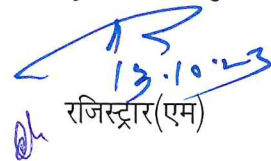 13.10.23
रजिस्ट्रार(एम)